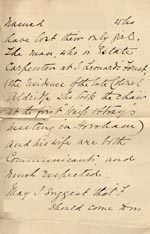 named who
have lost their only girl.
The man, who is Estate
Carpenter at S. Leonards Forest
(the residence of the late Colonel
Aldridge who took the chair
at the first Miss Strays
meeting in Horsham)
and his wife are both
Communicants, and
much respected.
May I suggest that I
should come